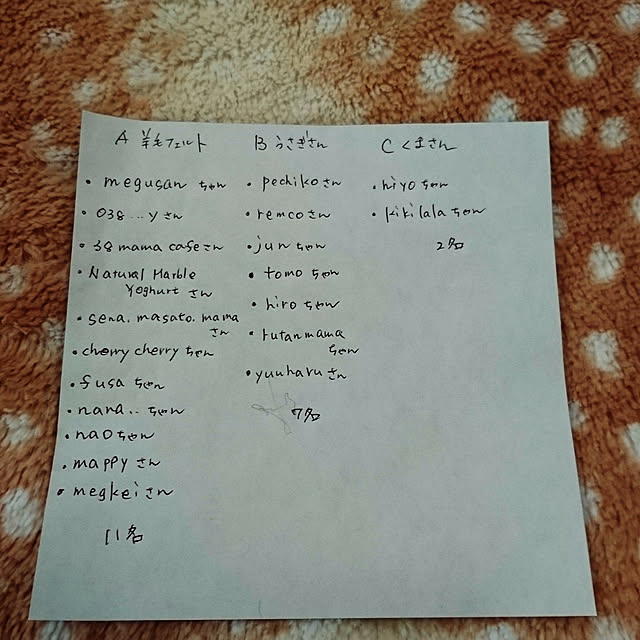 A 羊毛フェルト
・megusan ちゃん
・038...y さん
・38 mama cafe さん
・Natural Marble
Yoghurt さん
・sena. masato. mama
さん
・cherry cherry ちゃん
・fusa ちゃん
・nana.. ちゃん
・nao ちゃん
・mappy さん
・megkei さん
11名
B うさぎさん
・pechiko さん
・remco さん
・jun ちゃん
・tomo ちゃん
・hiro ちゃん
・rutanmama
ちゃん
・yuuharu さん
7名
C くまさん
・hiyo ちゃん
・kiki lala ちゃん
2名